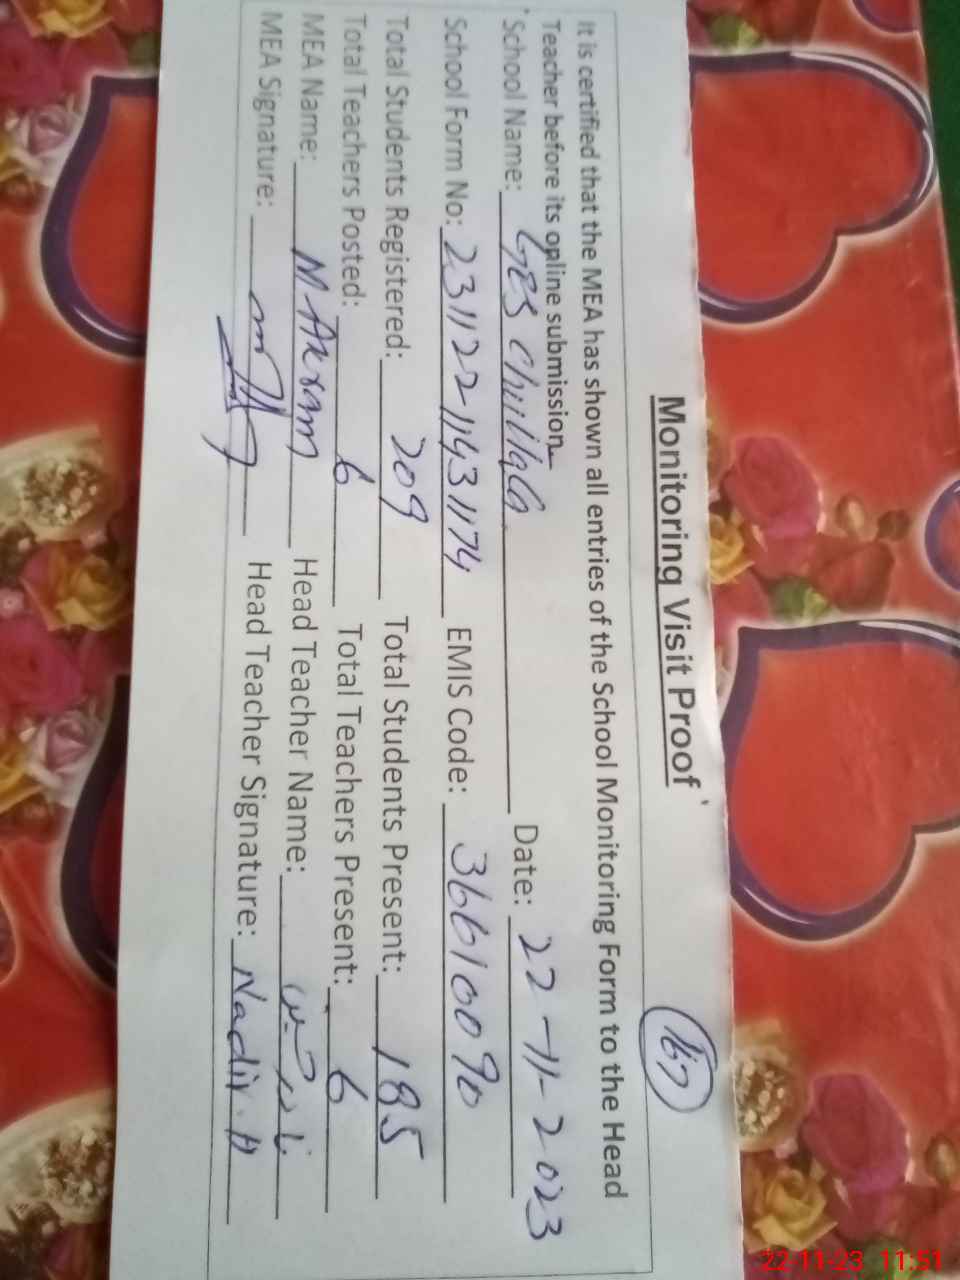 Monitoring Visit Proof
It is certified that the MEA has shown all entries of the School Monitoring Form to the Head
Teacher before its online submission
School Name: GES Date: 22-11-2023
School Form No: 23112211431174 EMIS Code: 36610090
Total Students Registered: 209 Total Students Present: 185
Total Teachers Posted: 6 Total Teachers Present: 6
MEA Name: M Akram Head Teacher Name:
MEA Signature: Head Teacher Signature: Nadir.A
22-11-23 11:51